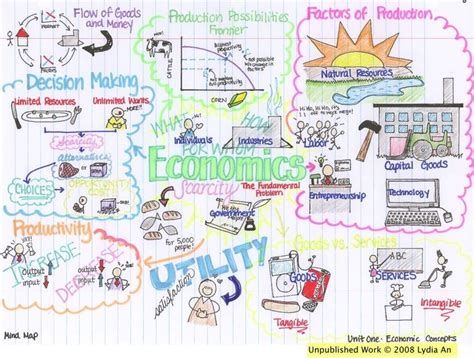 Flow of Goods
and Money
Production Possibilities
Frontier
CATTLE
CORN
Factors of Production
Natural Resources
Labor
Capital Goods
Entrepreneurship
Technology
Decision Making
Limited Resources
Unlimited Wants
MORE!
Scarcity
Alternatives
CHOICES
OPPORTUNITY
WHAT
HOW
FOR WHOM
Individuals
Industries
Economics
Scarcity
The Fundamental
Problem
We the
Government
Productivity
INCREASE
DECREASE
output
input
output
input
for 5,000
people?
UTILITY
satisfaction
Goods vs. Services
GOODS
Tangible
ABC
SERVICES
Intangible
Mind Map
Unit One: Economic Concepts
Unpublished Work © 2008 Lydia An